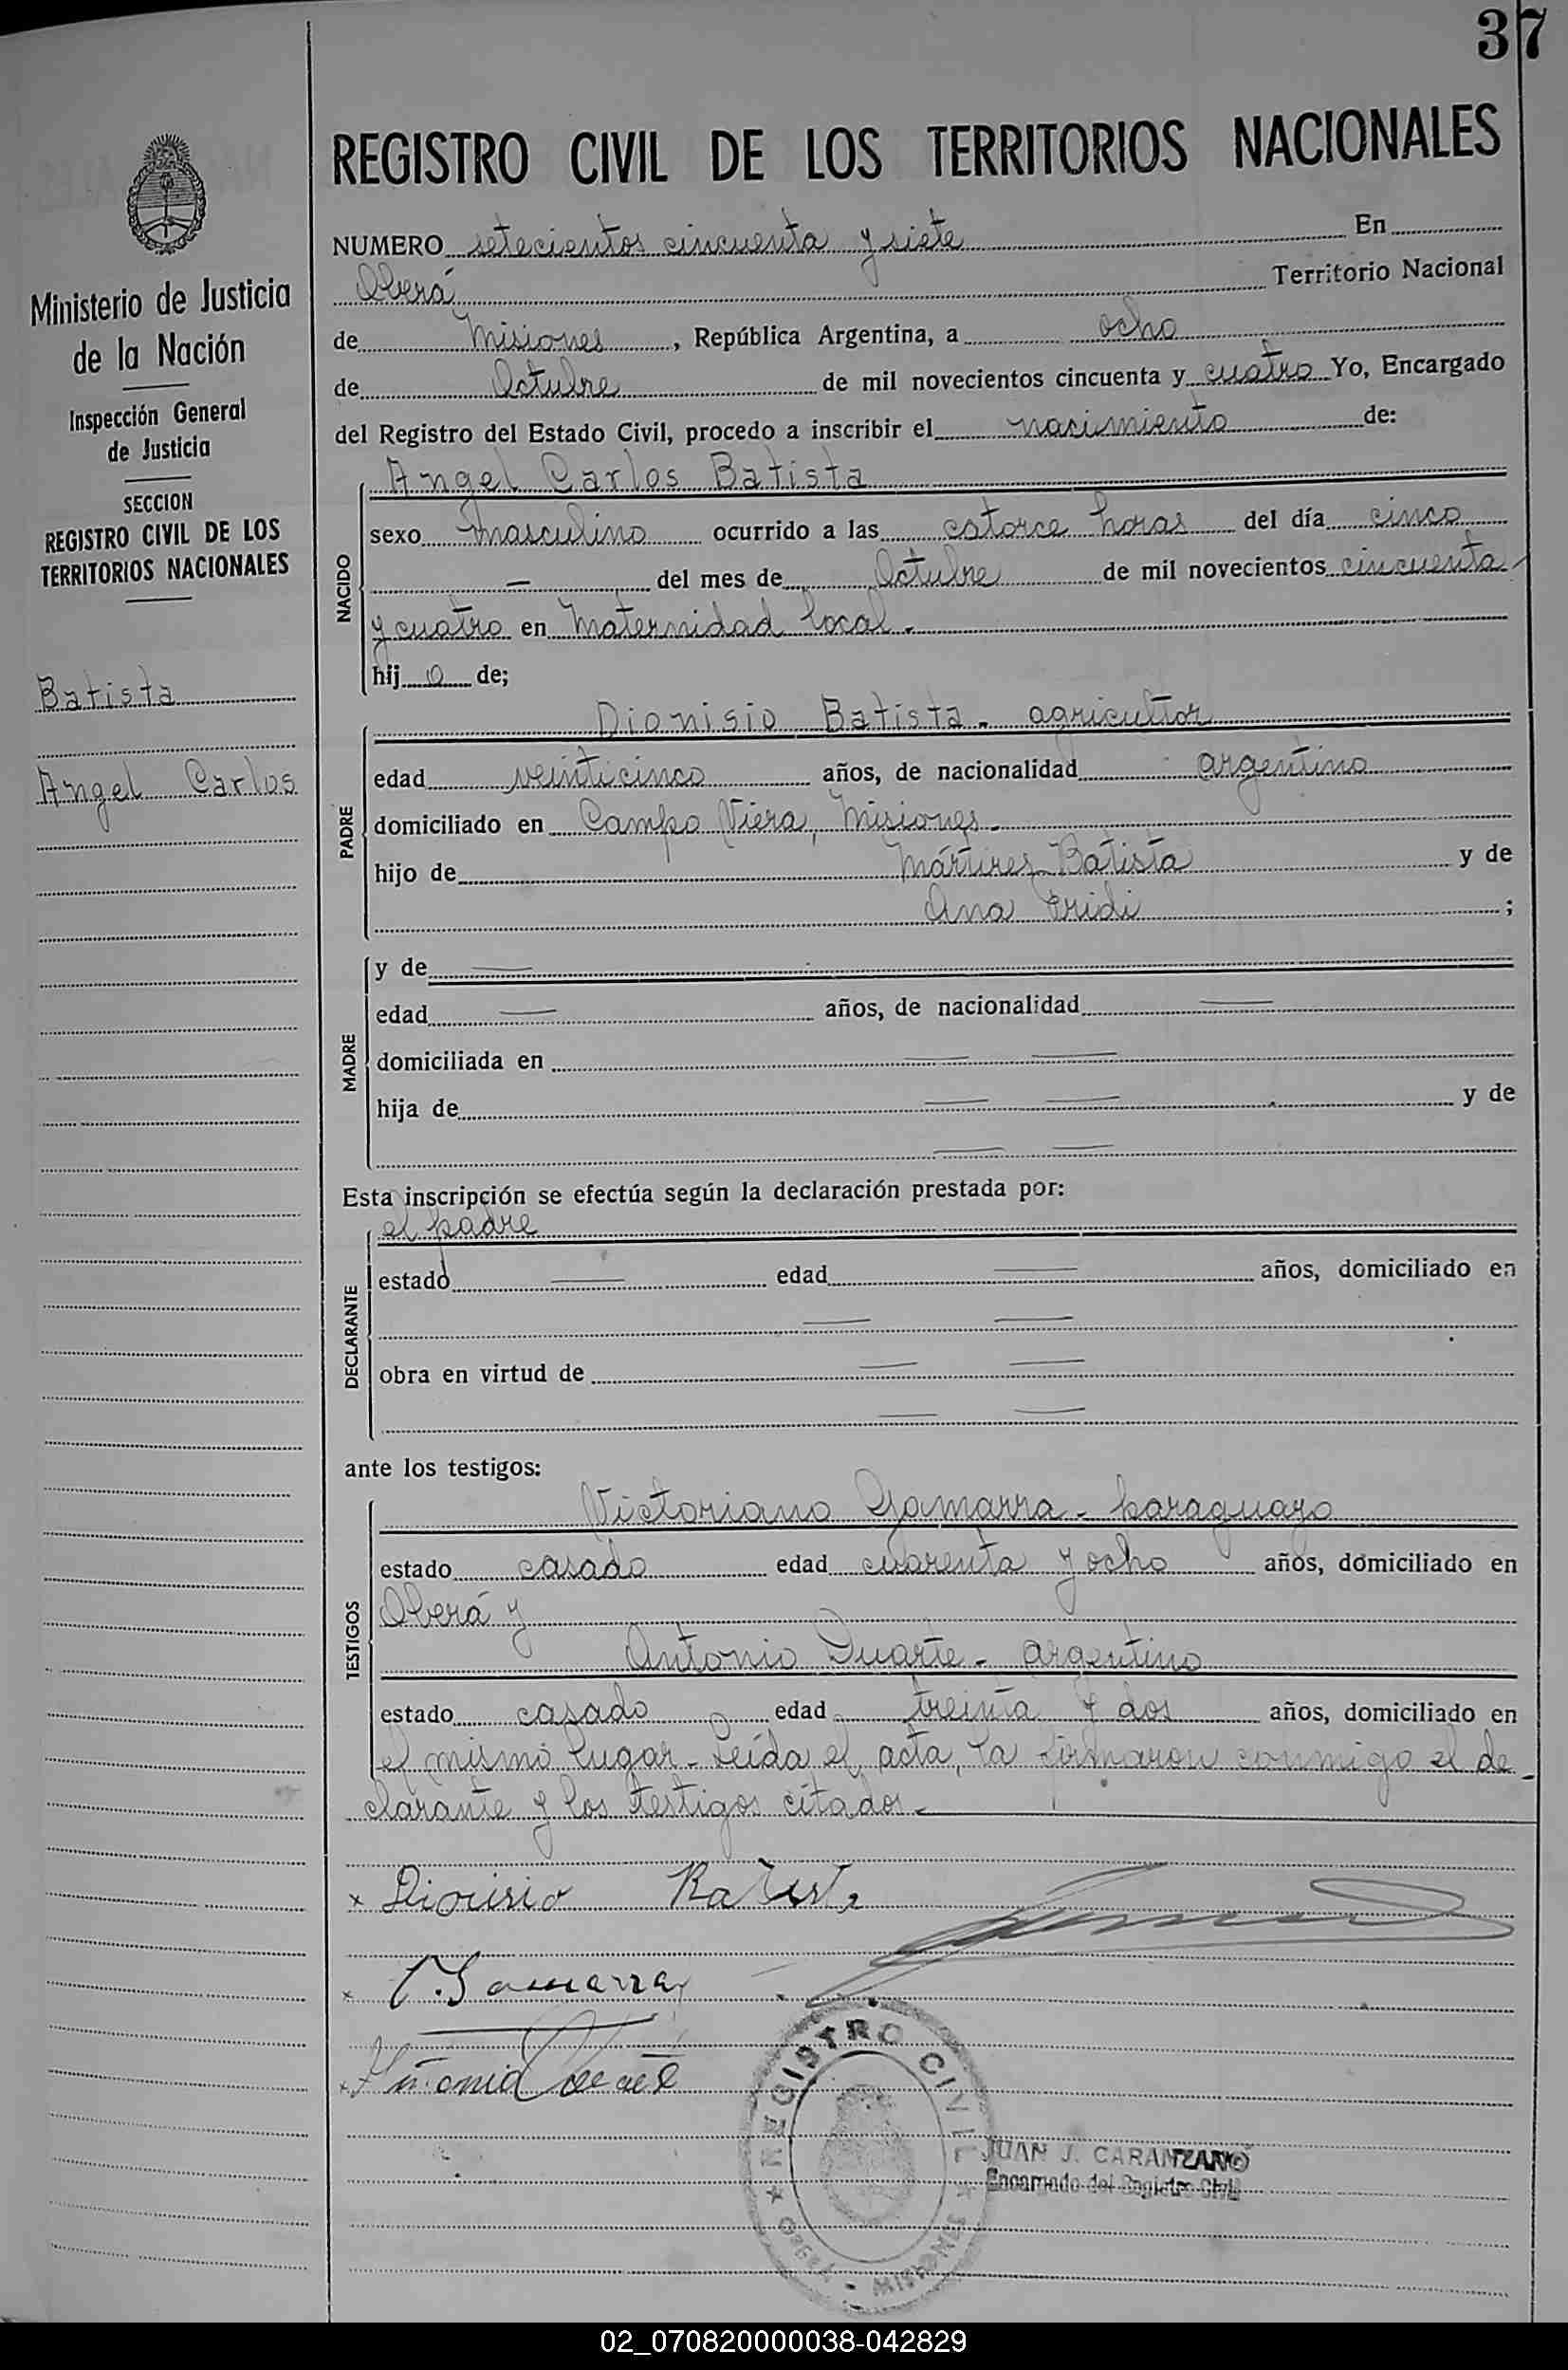 37
REGISTRO CIVIL DE LOS TERRITORIOS NACIONALES
Ministerio de Justicia
de la Nación
Inspección General
de Justicia
SECCION
REGISTRO CIVIL DE LOS
TERRITORIOS NACIONALES
Batista
Angel Carlos
NUMERO setecientos cincuenta y siete En
Oberá Territorio Nacional
de Misiones, República Argentina, a ocho
de Octubre de mil novecientos cincuenta y cuatro Yo, Encargado
del Registro del Estado Civil, procedo a inscribir el nacimiento de:
NACIDO
Angel Carlos Batista
sexo masculino ocurrido a las catorce horas del día cinco
— del mes de Octubre de mil novecientos cincuenta
y cuatro en Maternidad local.-
hij o de;
PADRE
Dionisio Batista - agricultor
edad veinticinco años, de nacionalidad argentino
domiciliado en Campo Viera, Misiones.-
hijo de Mártires Batista y de
Ana Fridi ;
MADRE
y de —
edad — años, de nacionalidad —
domiciliada en — —
hija de — — y de
— —
Esta inscripción se efectúa según la declaración prestada por:
DECLARANTE
el padre
estado — edad — años, domiciliado en
— —
obra en virtud de — —
— —
ante los testigos:
TESTIGOS
Victoriano Gamarra - paraguayo
estado casado edad cuarenta y ocho años, domiciliado en
Oberá y
Antonio Duarte - argentino
estado casado edad treinta y dos años, domiciliado en
el mismo lugar - Leída el acta, la firmaron conmigo el de-
clarante y los testigos citados.-
x Dionisio Batista
x V. Gamarra
x Antonio Duarte
REGISTRO CIVIL
★ OBERÁ - MISIONES ★
JUAN J. CARANZANO
Encargado del Registro Civil
02_070820000038-042829